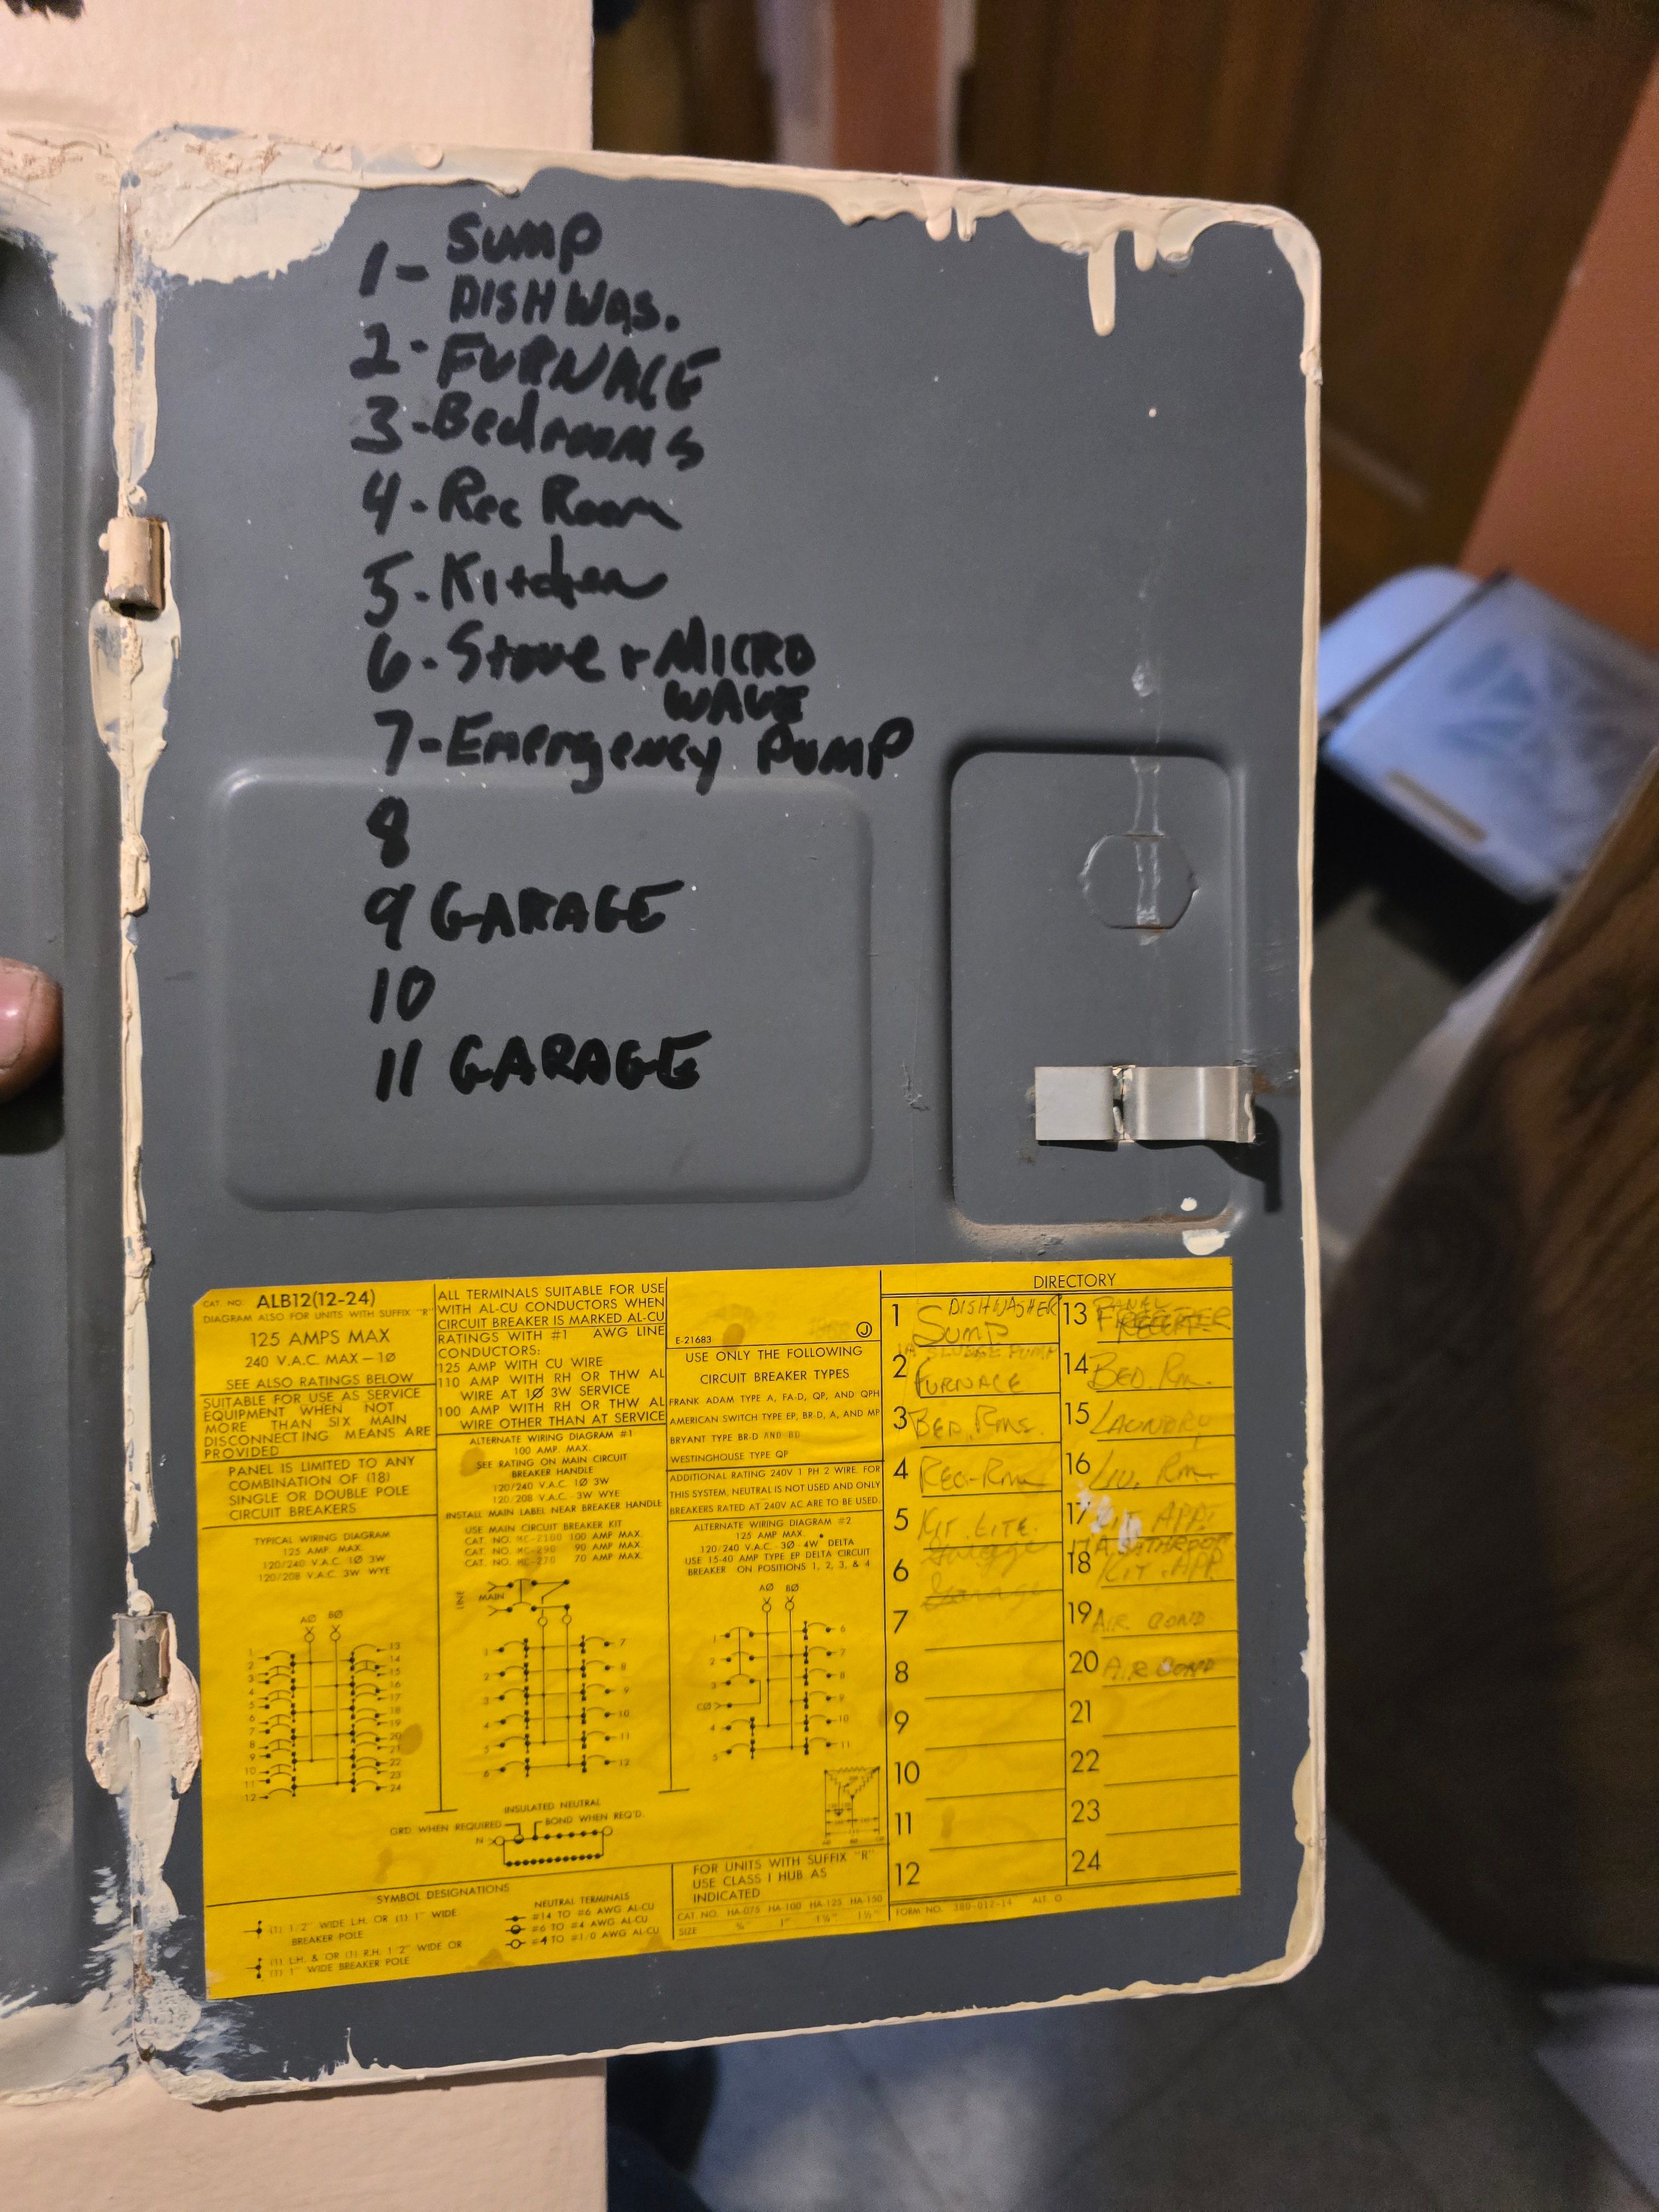 1- SUMP
DISHWAS.
2- FURNACE
3-Bedrooms
4-Rec Room
5-Kitchen
6-Stove + MICRO
WAVE
7-Emergency PUMP
8
9 GARAGE
10
11 GARAGE
CAT. NO. ALB12(12-24)
DIAGRAM ALSO FOR UNITS WITH SUFFIX "R"
125 AMPS MAX
240 V.A.C. MAX-1Ø
SEE ALSO RATINGS BELOW
SUITABLE FOR USE AS SERVICE
EQUIPMENT WHEN NOT
MORE THAN SIX MAIN
DISCONNECTING MEANS ARE
PROVIDED
PANEL IS LIMITED TO ANY
COMBINATION OF (18)
SINGLE OR DOUBLE POLE
CIRCUIT BREAKERS
TYPICAL WIRING DIAGRAM
125 AMP. MAX.
120/240 V.A.C. 1Ø 3W
120/208 V.A.C. 3W WYE
AØ BØ
1 13
2 14
3 15
4 16
5 17
6 18
7 19
8 20
9 21
10 22
11 23
12 24
ALL TERMINALS SUITABLE FOR USE
WITH AL-CU CONDUCTORS WHEN
CIRCUIT BREAKER IS MARKED AL-CU
RATINGS WITH #1 AWG LINE
CONDUCTORS:
125 AMP WITH CU WIRE
110 AMP WITH RH OR THW AL
WIRE AT 1Ø 3W SERVICE
100 AMP WITH RH OR THW AL
WIRE OTHER THAN AT SERVICE
ALTERNATE WIRING DIAGRAM #1
100 AMP. MAX.
SEE RATING ON MAIN CIRCUIT
BREAKER HANDLE
120/240 V.A.C. 1Ø 3W
120/208 V.A.C. 3W WYE
INSTALL MAIN LABEL NEAR BREAKER HANDLE
USE MAIN CIRCUIT BREAKER KIT
CAT. NO. MC-2100 100 AMP MAX.
CAT. NO. MC-290 90 AMP MAX.
CAT. NO. MC-270 70 AMP MAX.
LINE
MAIN
1 7
2 8
3 9
4 10
5 11
6 12
E-21683
USE ONLY THE FOLLOWING
CIRCUIT BREAKER TYPES
FRANK ADAM TYPE A, FA.D, QP, AND QPH
AMERICAN SWITCH TYPE EP, BR-D, A, AND MP
BRYANT TYPE BR-D AND BD
WESTINGHOUSE TYPE QP
ADDITIONAL RATING 240V 1 PH 2 WIRE. FOR
THIS SYSTEM, NEUTRAL IS NOT USED AND ONLY
BREAKERS RATED AT 240V AC ARE TO BE USED.
ALTERNATE WIRING DIAGRAM #2
125 AMP MAX.
120/240 V.A.C. - 3Ø - 4W DELTA
USE 15-40 AMP TYPE EP DELTA CIRCUIT
BREAKER ON POSITIONS 1, 2, 3, & 4
AØ BØ
1 6
2 7
3 8
CØ 9
4 10
5 11
INSULATED NEUTRAL
GRD. WHEN REQUIRED BOND WHEN REQ'D.
N
SYMBOL DESIGNATIONS
(1) 1/2" WIDE L.H. OR (1) 1" WIDE
BREAKER POLE
(1) L.H. & OR (1) R.H. 1/2" WIDE OR
(1) 1" WIDE BREAKER POLE
NEUTRAL TERMINALS
#14 TO #6 AWG AL-CU
#6 TO #4 AWG AL-CU
#4 TO #1/0 AWG AL-CU
FOR UNITS WITH SUFFIX "R"
USE CLASS I HUB AS
INDICATED
CAT. NO. HA-075 HA-100 HA-125 HA-150
SIZE ¾" 1" 1¼" 1½"
DIRECTORY
1 DISHWASHER
SUMP
1A SLUDGE PUMP
2 FURNACE
3 BED. RMS.
4 REC-RM
5 KIT. LITE.
Garage
6 Garage
7
8
9
10
11
12
13 PANEL
FREEZER
14 BED. Rm.
15 LAUNDRY
16 LIV. Rm
17 KIT APP.
17A BATHROOM
18 KIT. APP.
19 AIR COND
20 AIR COND
21
22
23
24
FORM NO. 380-012-14 ALT. O